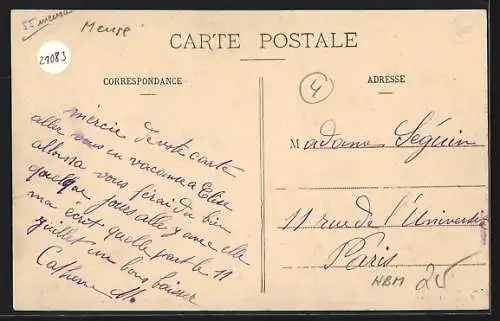 55 meuse
Meuse
21083
CARTE POSTALE
CORRESPONDANCE
ADRESSE
4
mercie de vote carte
aller vous en vacance a Elise
vous ferai du bien
quelque jours aller y avec elle
ma écrit quelle part le 11
juillet un bons baiser
Madame Séguin
11 rue de l'Université
Paris
HBM 25